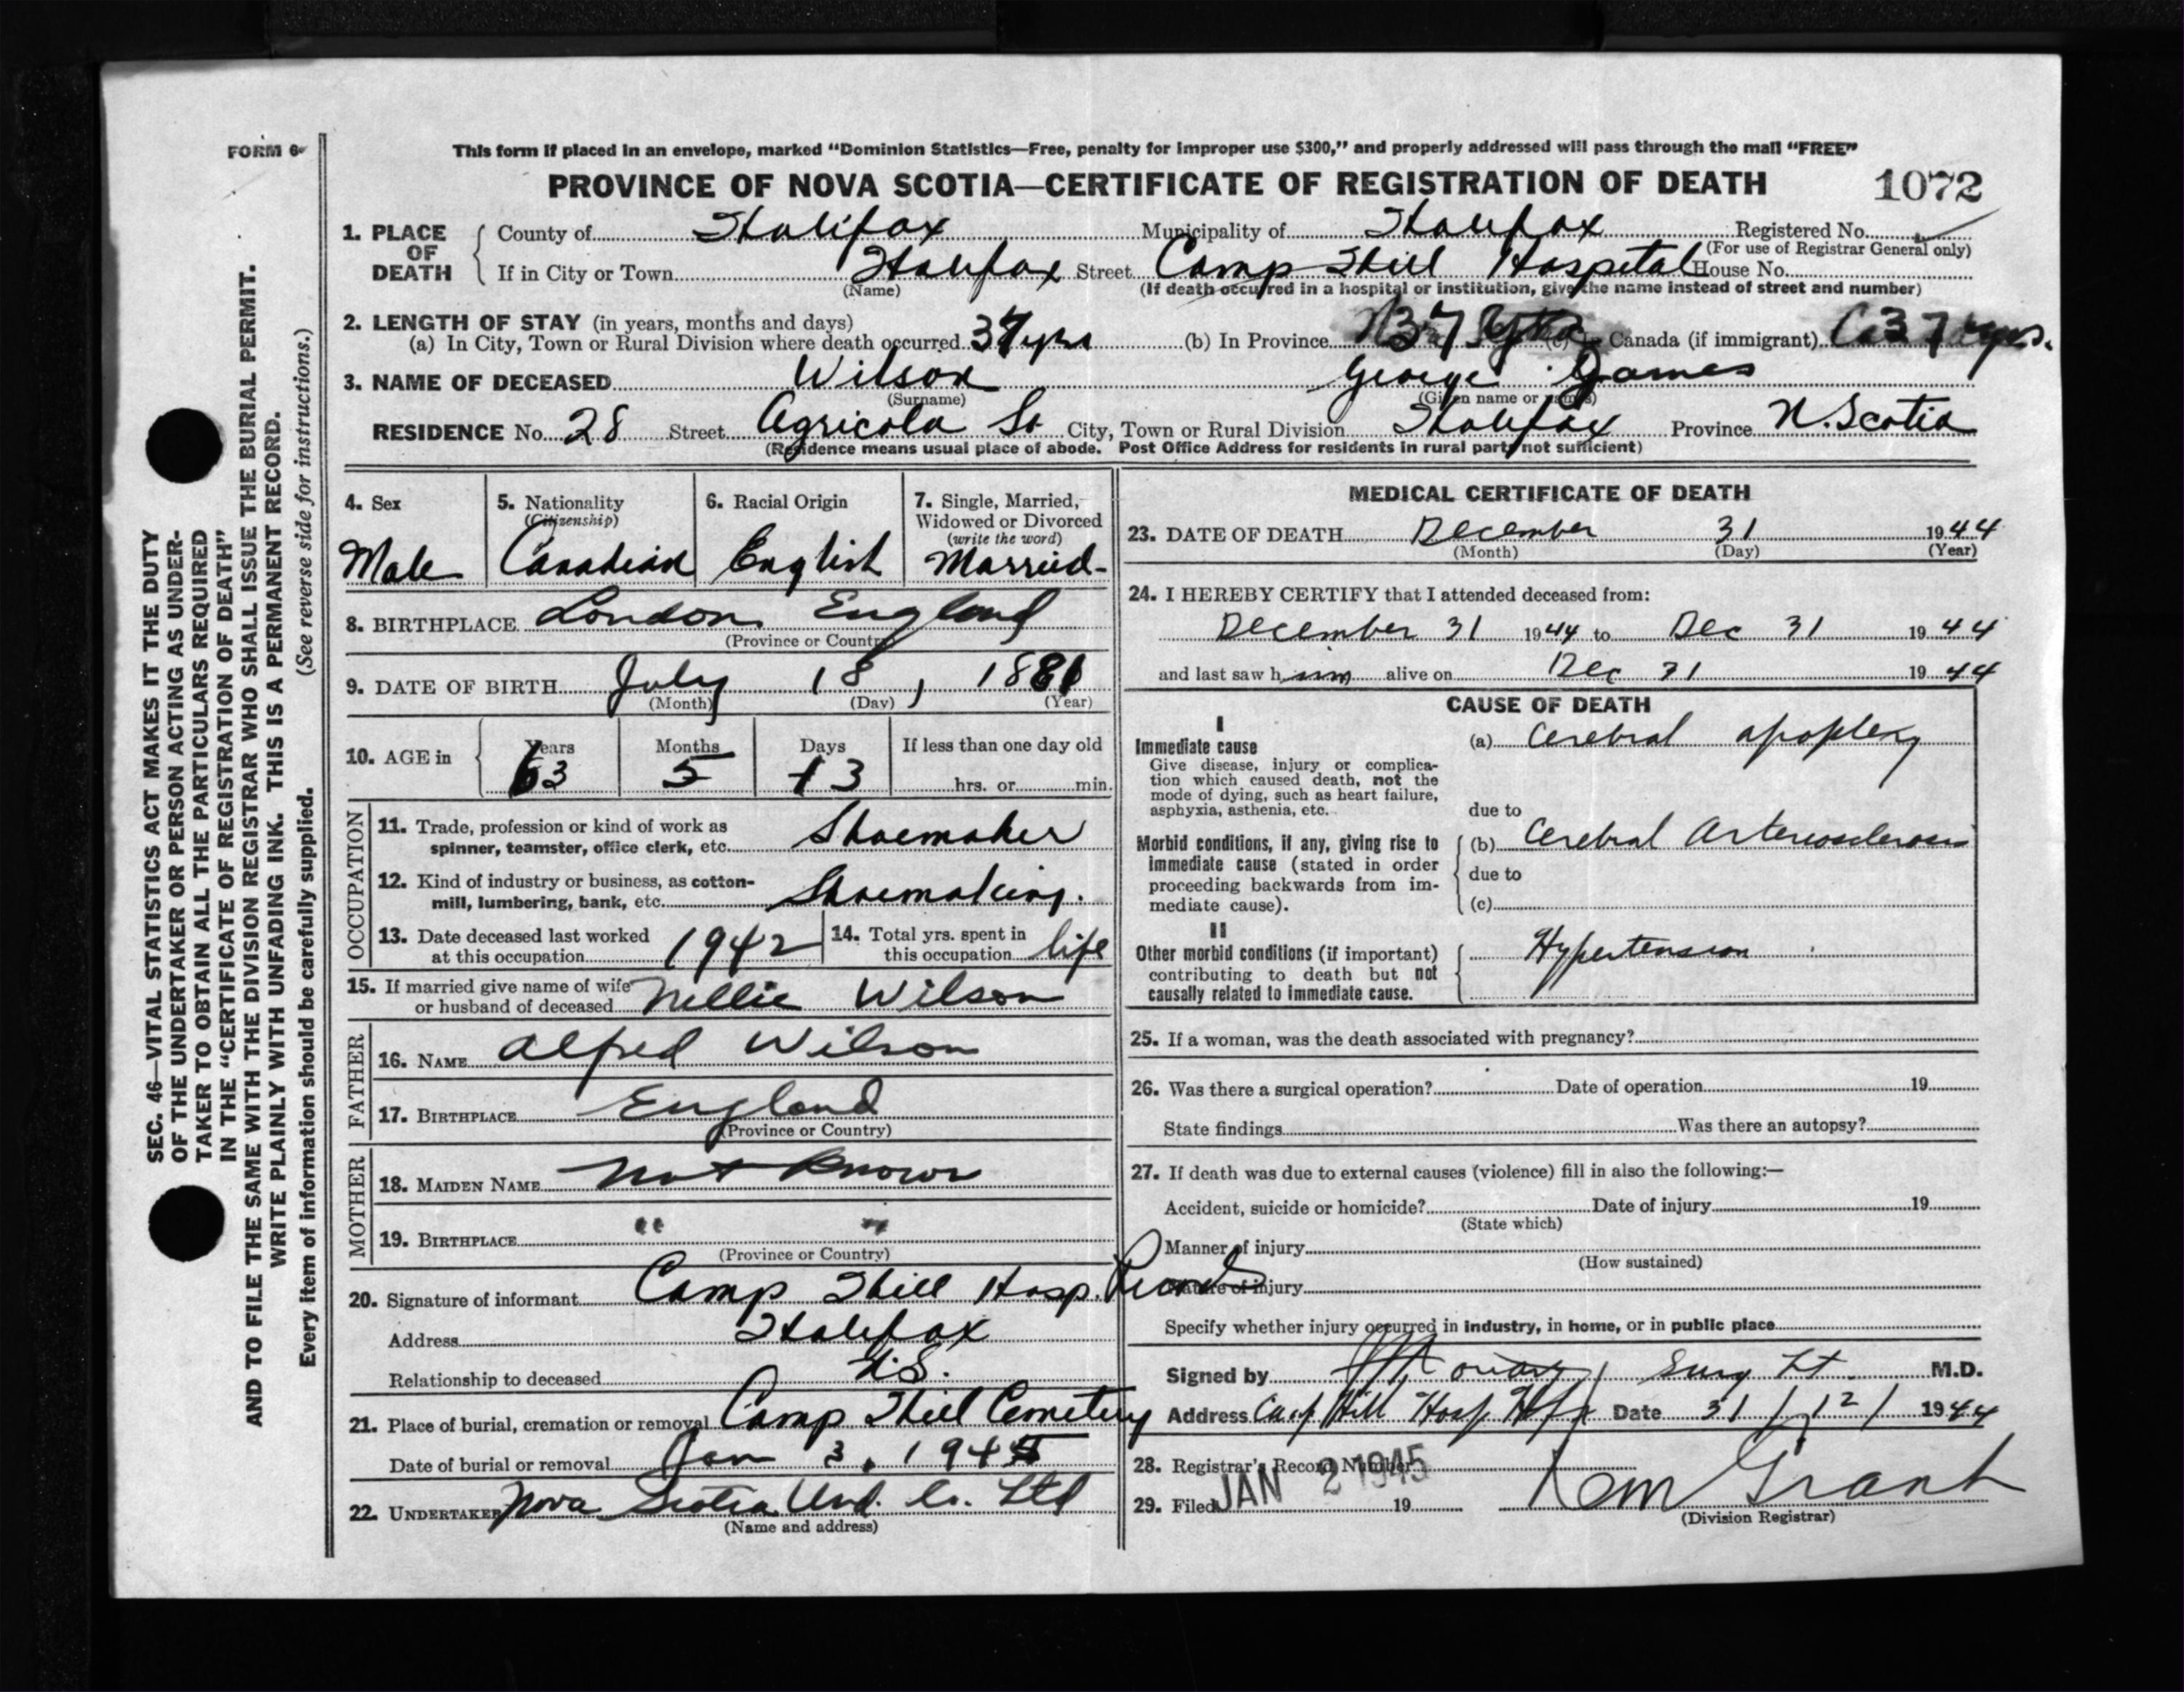 FORM 6
This form if placed in an envelope, marked “Dominion Statistics—Free, penalty for improper use $300,” and properly addressed will pass through the mail “FREE”
PROVINCE OF NOVA SCOTIA—CERTIFICATE OF REGISTRATION OF DEATH 1072
1. PLACE OF DEATH
County of Halifax Municipality of Halifax Registered No.
(For use of Registrar General only)
If in City or Town Halifax Street Camp Hill Hospital House No.
(Name) (If death occurred in a hospital or institution, give the name instead of street and number)
2. LENGTH OF STAY (in years, months and days)
(a) In City, Town or Rural Division where death occurred 37 yrs (b) In Province 37 yrs (c) In Canada (if immigrant) 37 yrs.
3. NAME OF DECEASED Wilson George James
(Surname) (Given name or names)
RESIDENCE No. 28 Street Agricola St. City, Town or Rural Division Halifax Province N. Scotia
(Residence means usual place of abode. Post Office Address for residents in rural parts not sufficient)
4. Sex
Male
5. Nationality
(Citizenship)
Canadian
6. Racial Origin
English
7. Single, Married,
Widowed or Divorced
(write the word)
Married
8. BIRTHPLACE London England
(Province or Country)
9. DATE OF BIRTH July 18, 1881
(Month) (Day) (Year)
10. AGE in
Years Months Days If less than one day old
63 5 13 hrs. or min.
OCCUPATION
11. Trade, profession or kind of work as
spinner, teamster, office clerk, etc. Shoemaker
12. Kind of industry or business, as cotton-
mill, lumbering, bank, etc. Shoemaking.
13. Date deceased last worked
at this occupation 1942
14. Total yrs. spent in
this occupation life
15. If married give name of wife
or husband of deceased Nellie Wilson
FATHER
16. NAME Alfred Wilson
17. BIRTHPLACE England
(Province or Country)
MOTHER
18. MAIDEN NAME Not Known
19. BIRTHPLACE " "
(Province or Country)
20. Signature of informant Camp Hill Hosp. Records
Address Halifax
Relationship to deceased N.S.
21. Place of burial, cremation or removal Camp Hill Cemetery
Date of burial or removal Jan 3, 1945
22. UNDERTAKER Nova Scotia Und. Co. Ltd
(Name and address)
MEDICAL CERTIFICATE OF DEATH
23. DATE OF DEATH December 31 1944
(Month) (Day) (Year)
24. I HEREBY CERTIFY that I attended deceased from:
December 31 1944 to Dec 31 1944
and last saw him alive on Dec 31 1944
CAUSE OF DEATH
I
Immediate cause
Give disease, injury or complica-
tion which caused death, not the
mode of dying, such as heart failure,
asphyxia, asthenia, etc.
(a) Cerebral apoplexy
due to
Morbid conditions, if any, giving rise to
immediate cause (stated in order
proceeding backwards from im-
mediate cause).
(b) Cerebral Arteriosclerosis
due to
(c)
II
Other morbid conditions (if important)
contributing to death but not
causally related to immediate cause.
Hypertension
25. If a woman, was the death associated with pregnancy?
26. Was there a surgical operation? Date of operation 19
State findings Was there an autopsy?
27. If death was due to external causes (violence) fill in also the following:—
Accident, suicide or homicide? Date of injury 19
(State which)
Manner of injury
(How sustained)
Nature of injury
Specify whether injury occurred in industry, in home, or in public place
Signed by Surg Lt. M.D.
Address Camp Hill Hosp Hfx Date 31/12/1944
28. Registrar's Record Number
29. Filed JAN 2 1945 19 Grant
(Division Registrar)
SEC. 46—VITAL STATISTICS ACT MAKES IT THE DUTY
OF THE UNDERTAKER OR PERSON ACTING AS UNDER-
TAKER TO OBTAIN ALL THE PARTICULARS REQUIRED
IN THE “CERTIFICATE OF REGISTRATION OF DEATH”
AND TO FILE THE SAME WITH THE DIVISION REGISTRAR WHO SHALL ISSUE THE BURIAL PERMIT.
WRITE PLAINLY WITH UNFADING INK. THIS IS A PERMANENT RECORD.
Every item of information should be carefully supplied. (See reverse side for instructions.)